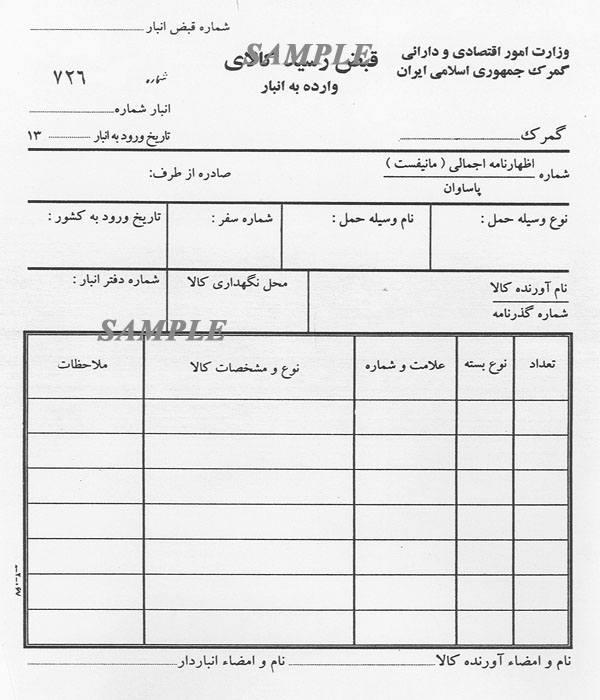 شماره قبض انبار
SAMPLE
وزارت امور اقتصادی و دارائی
گمرک جمهوری اسلامی ایران
قبض رسید کالای
وارده به انبار
شماره ۷۲۶
انبار شماره
گمرک
تاریخ ورود به انبار ۱۳
شماره اظهارنامه اجمالی ( مانیفست )
پاساوان
صادره از طرف:
نوع وسیله حمل : نام وسیله حمل : شماره سفر : تاریخ ورود به کشور :
نام آورنده کالا
شماره گذرنامه
محل نگهداری کالا شماره دفتر انبار :
SAMPLE
تعداد نوع بسته علامت و شماره نوع و مشخصات کالا ملاحظات
نام و امضاء آورنده کالا نام و امضاء انباردار